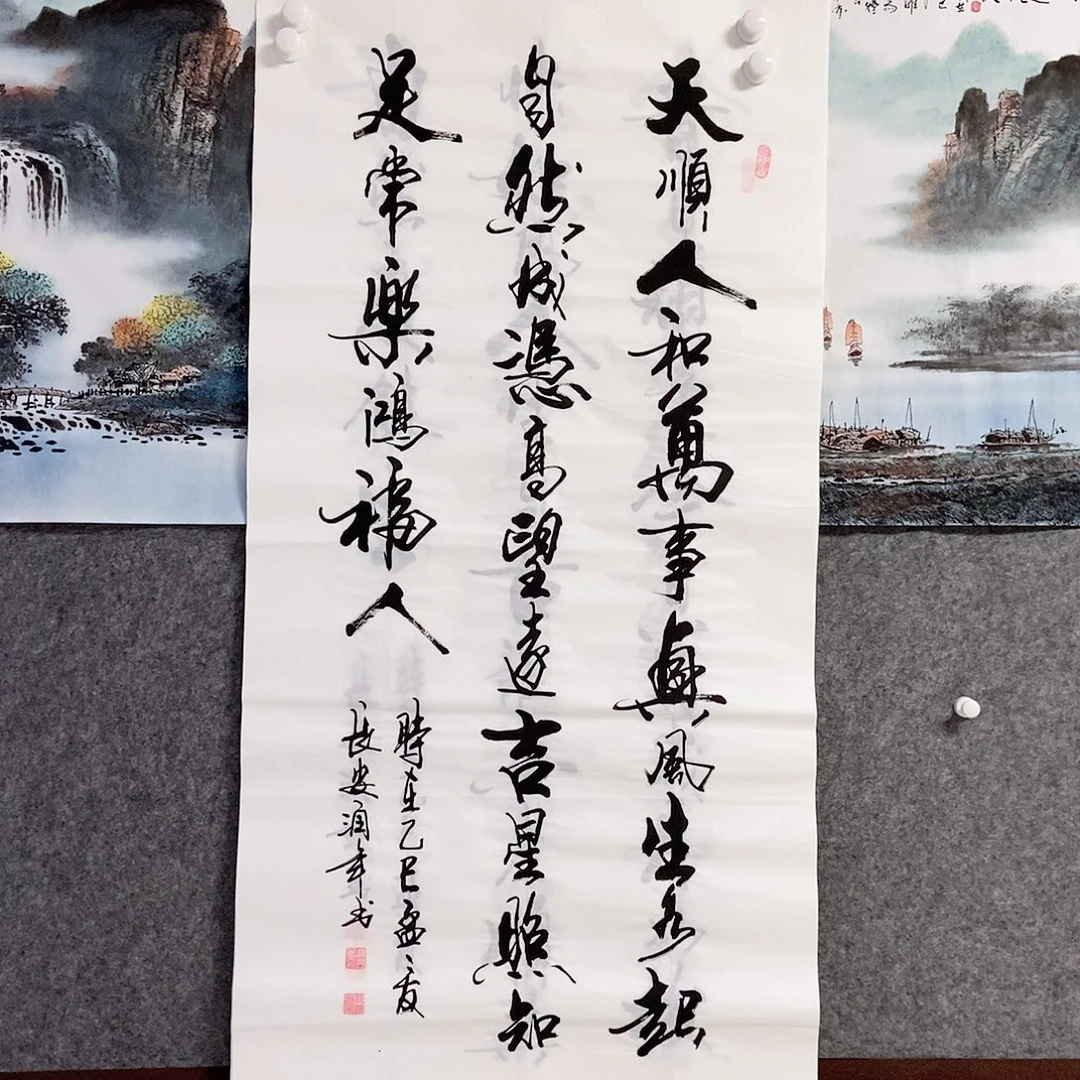 天順人和萬事興風生水起
自然成憑高望遠吉星照知
足常樂鴻福人
時在乙巳孟夏
長安潤年书